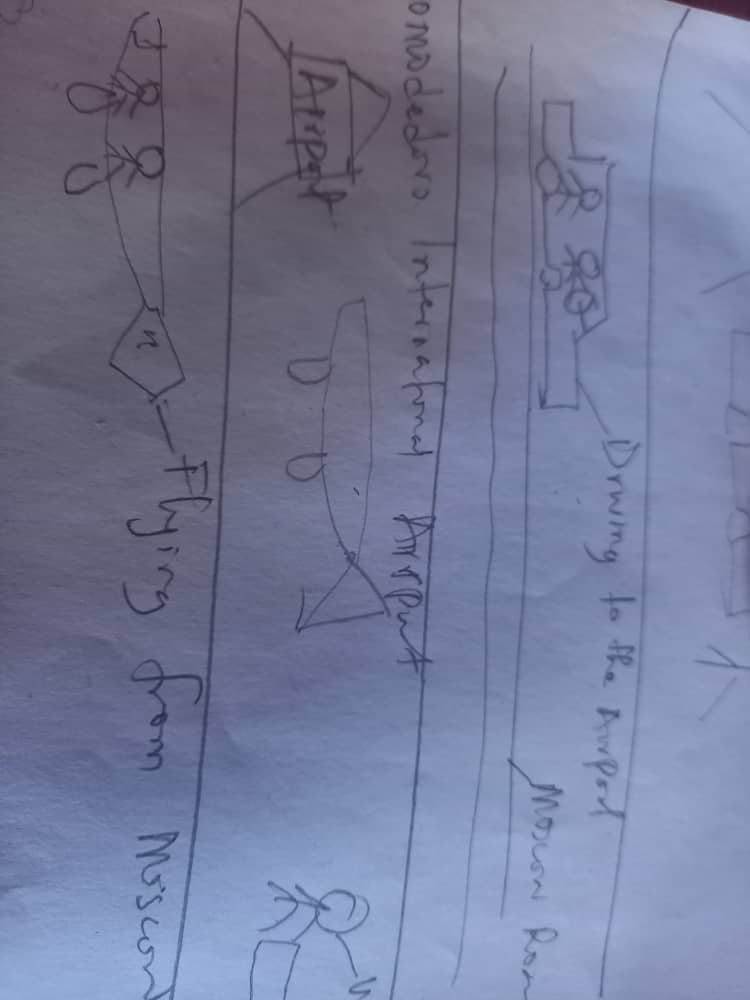 Driving to the Airport
Moscow Roa
omodedovo International Airport
Airport
Flying from Moscow